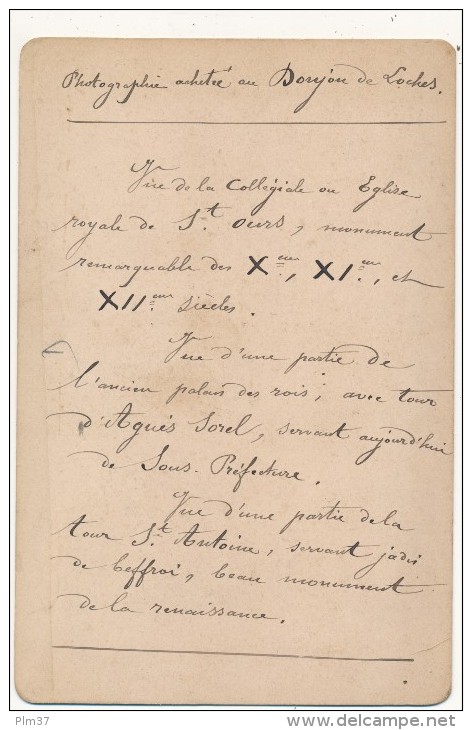 Photographie achetée au Donjon de Loches.
Vue de la Collégiale ou Eglise
royale de St. Ours, monument
remarquable des Xème, XIème, et
XIIème siècles.
Vue d'une partie de
l'ancien palais des rois; avec tour
d'Agnés Sorel, servant aujourd'hui
de Sous-Préfecture.
Vue d'une partie de la
tour St. Antoine, servant jadis
de beffroi, beau monument
de la renaissance.
Plm_37
www.delcampe.net